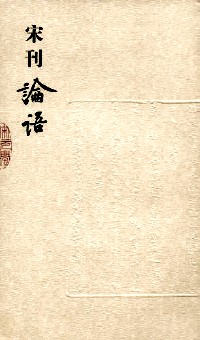 宋刊論语